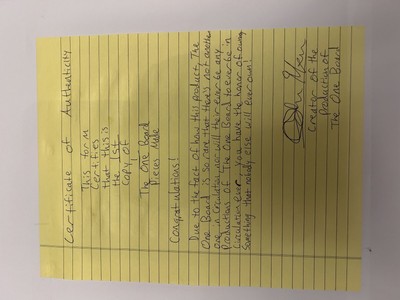 Certificate of Authenticity
This form
Certifies
that this is
the 1st
Copy of
The One Board
Pieles Made
Congratulations!
Due to the fact of how this product, The
One Board is so rare that there's not another
one in Circulation nor will their ever be any
Productions of The One Board to ever be in
Circulation ever. You have the honor of owning
Something that nobody else will ever own!
Creator of the
production of
The One Board